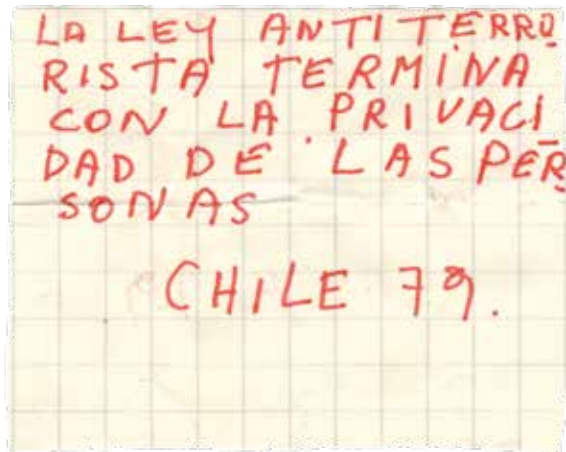 LA LEY ANTITERRO
RISTA TERMINA
CON LA PRIVACI
DAD DE LAS PER
SONAS
CHILE 79.